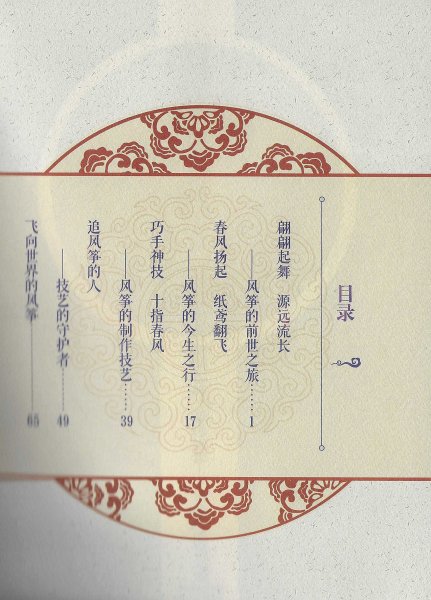 目录
翩翩起舞 源远流长
——风筝的前世之旅……1
春风扬起 纸鸢翻飞
——风筝的今生之行……17
巧手神技 十指春风
——风筝的制作技艺……39
追风筝的人
——技艺的守护者……49
飞向世界的风筝——65